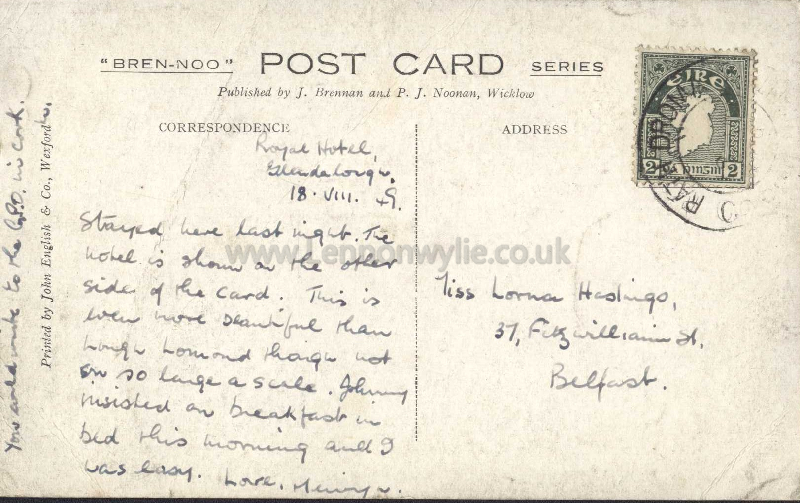 "BREN-NOO" POST CARD SERIES
Published by J. Brennan and P. J. Noonan, Wicklow
CORRESPONDENCE
Royal Hotel,
Glendalough.
18. VIII. 49.
Stayed here last night. The
hotel is shown on the other
side of the card. This is
even more beautiful than
Lough Lomond though not
on so large a scale. Johnny
insisted on breakfast in
bed this morning and I
was easy. Love,
You could write to the G.P.O. in Cork.
Printed by John English & Co., Wexford
ADDRESS
Miss Lorna Hastings,
37, Fitzwilliam St,
Belfast.
éire
2 2
www.Lennonwylie.co.uk